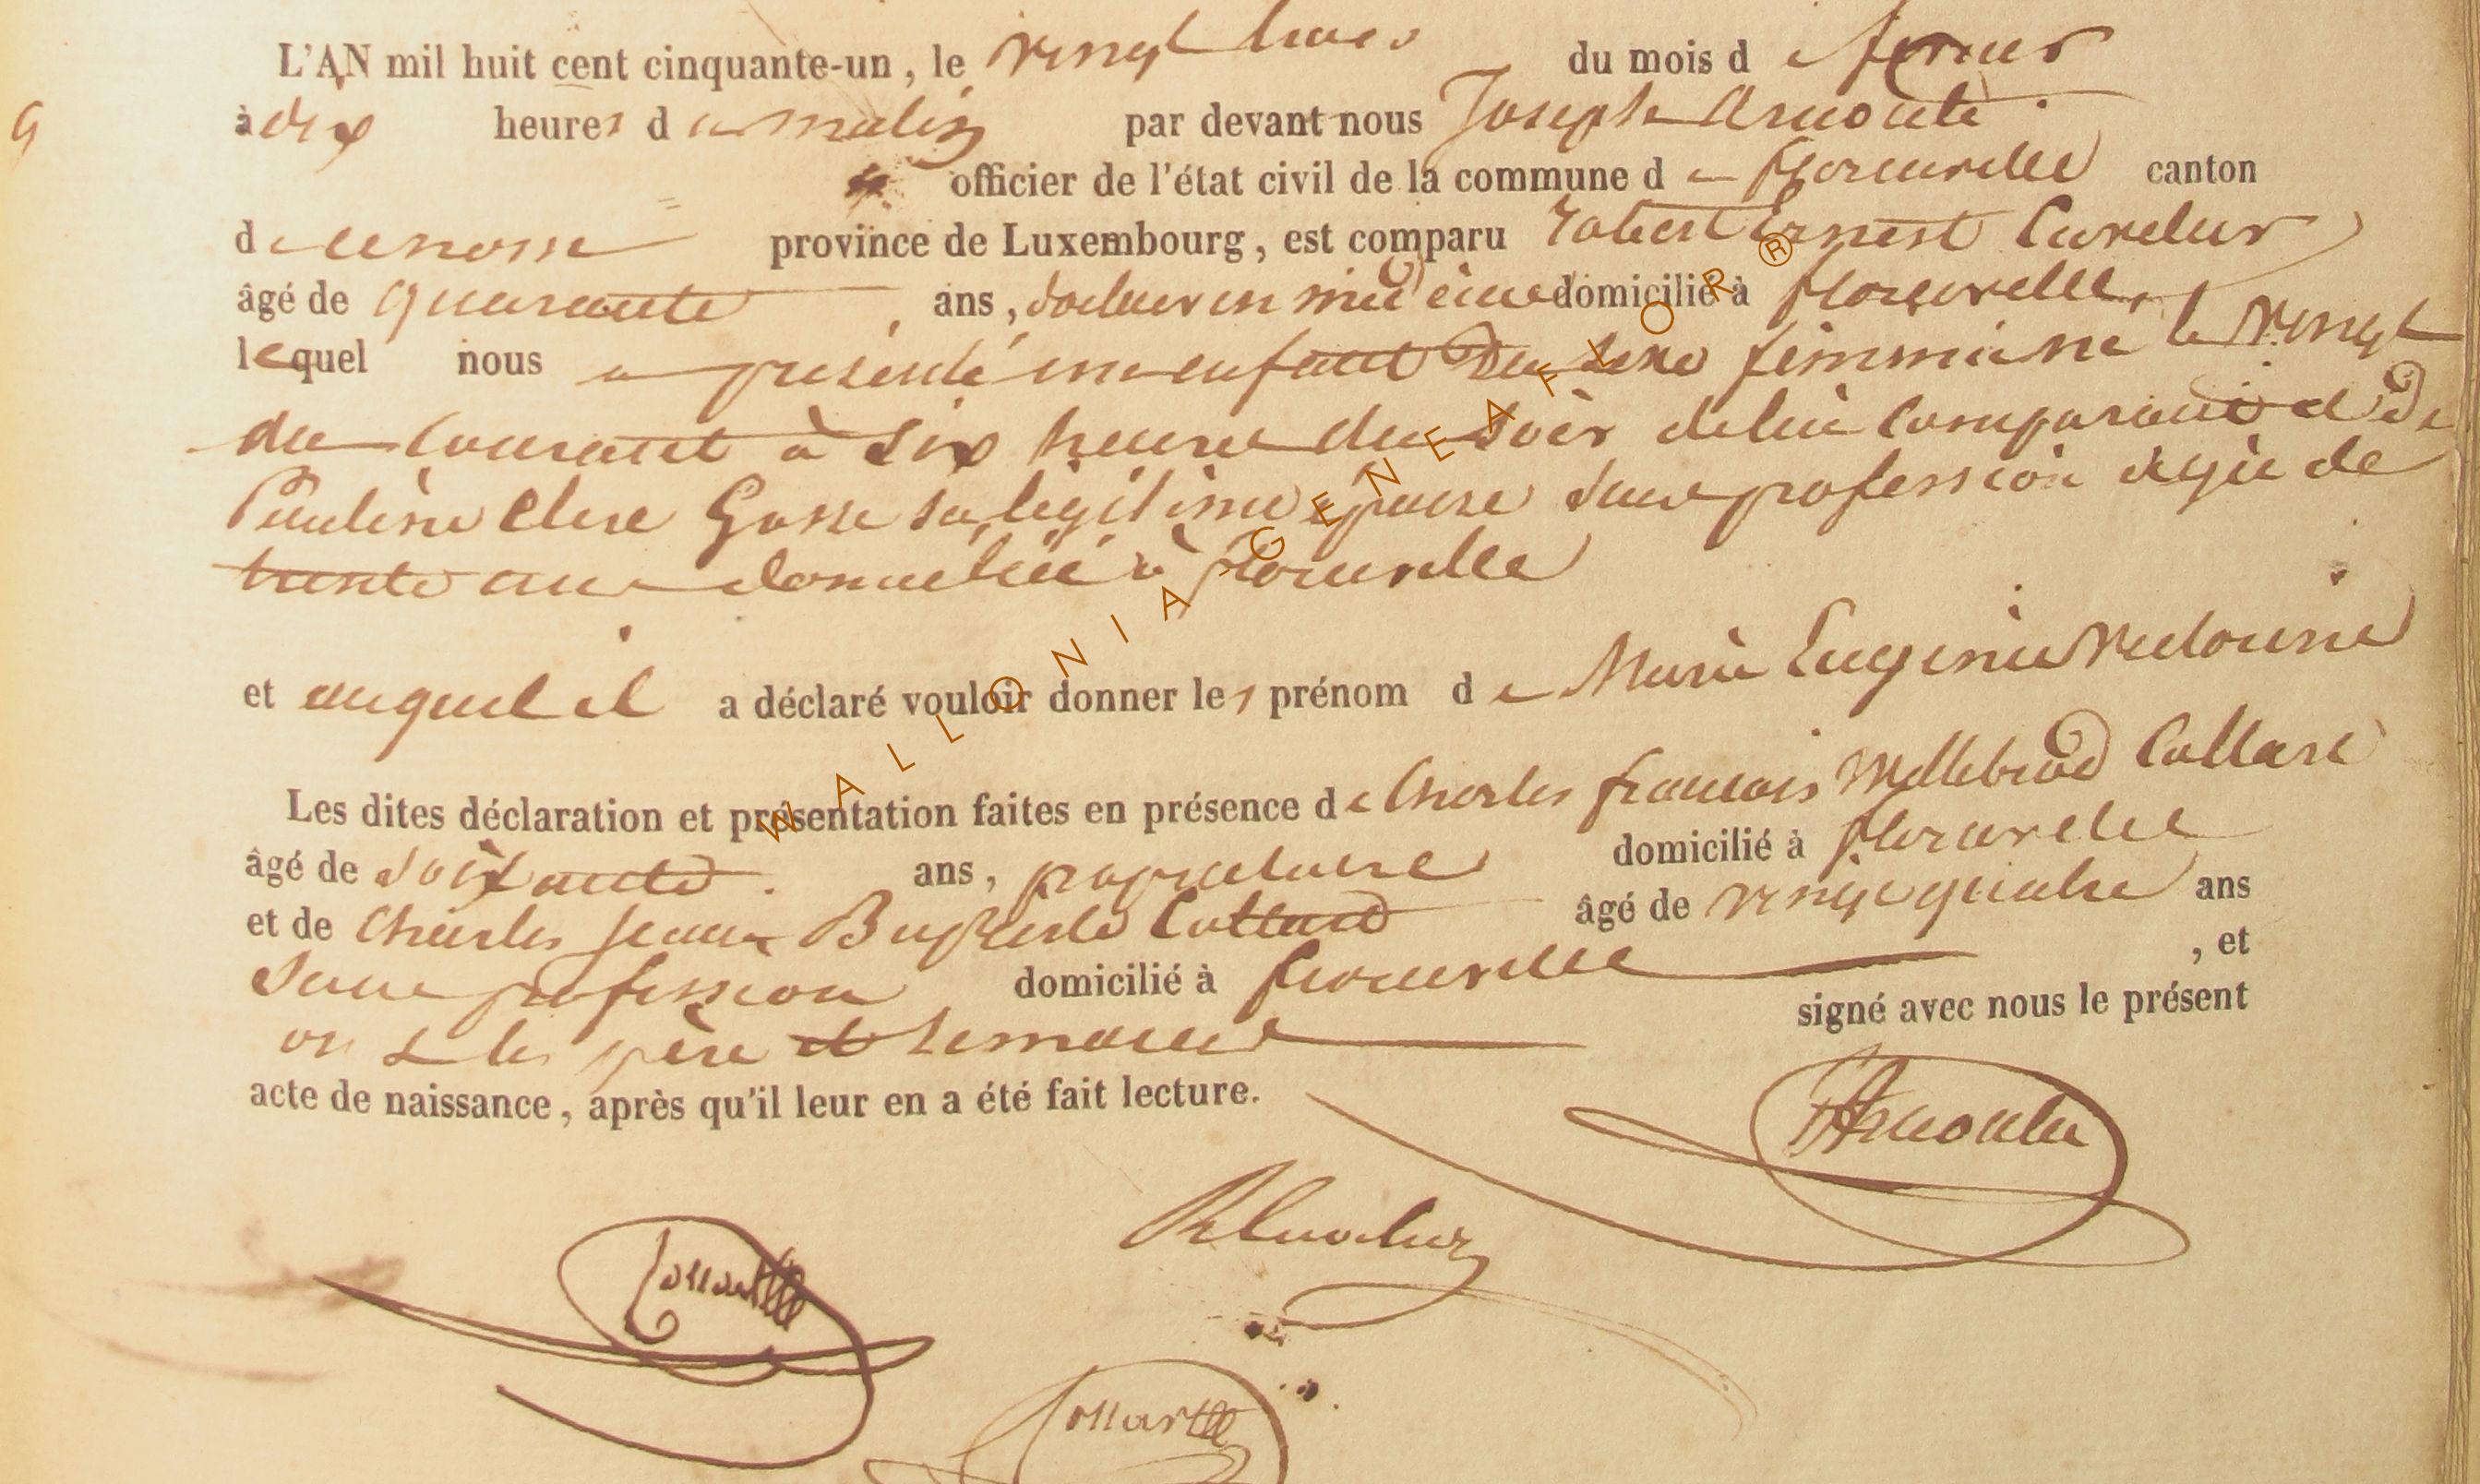 L'AN mil huit cent cinquante-un, le vingt trois du mois de fevrier
9 à dix heures du matin par devant nous Joseph Arnould
officier de l'état civil de la commune de florenville canton
de province de Luxembourg, est comparu Robert Ernest
âgé de quarante ans, docteur en médécine domicilié à florenville,
lequel nous a présenté un enfant du sexe femminine le vingt
du courant à six heure du soir de lui comparant et de
Pauline Clere Gosse sa legitime epouse sans profession agée de
trente ans domiciliée à florenville
et auquel il a déclaré vouloir donner les prénom de Marie Eugenie
Les dites déclaration et présentation faites en présence de Charles francois Willebrod Collard
âgé de soixante ans, propriétaire domicilié à florenville
et de Charles Jean Baptiste Collard âgé de vingt quatre ans
sans profession domicilié à florenville , et
ont le père et temoins signé avec nous le présent
acte de naissance, après qu'il leur en a été fait lecture.
WALLONIA GENEAFLOR ®